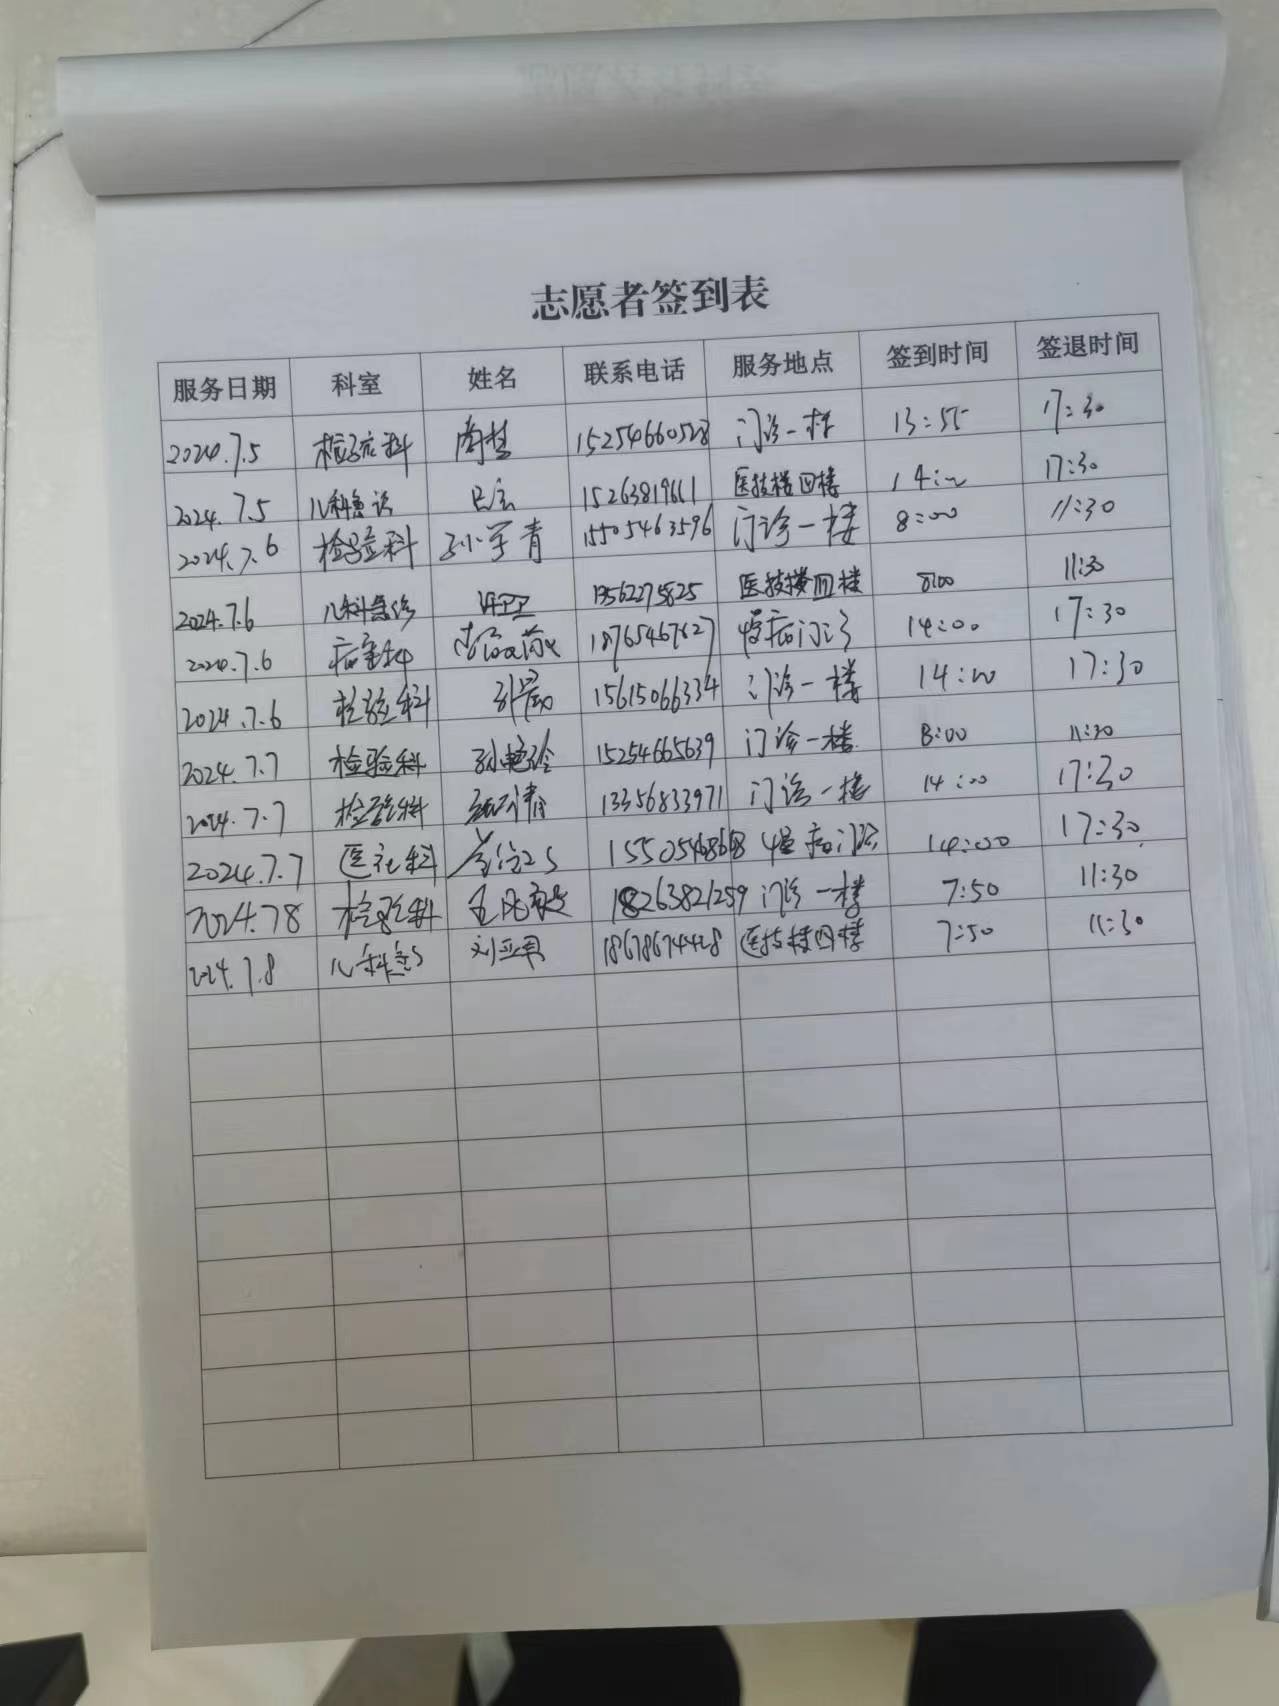 志愿者签到表
服务日期 科室 姓名 联系电话 服务地点 签到时间 签退时间
2024.7.5 检验科 15254660528 门诊一楼 13:55 17:30
2024.7.5 儿科急诊 15263819661 医技楼四楼 14:00 17:30
2024.7.6 检验科 孙学青 15505463596 门诊一楼 8:00 11:30
2024.7.6 儿科急诊 13562275825 医技楼四楼 8:00 11:30
2024.7.6 18765467627 慢病门诊 14:00 17:30
2024.7.6 检验科 15615066334 门诊一楼 14:00 17:30
2024.7.7 检验科 孙艳玲 15254665639 门诊一楼 8:00 11:30
2024.7.7 检验科 13356833971 门诊一楼 14:00 17:30
2024.7.7 慢病门诊 14:00 17:30
2024.7.8 检验科 18263821259 门诊一楼 7:50 11:30
2024.7.8 刘亚男 18678674428 医技楼四楼 7:50 11:30